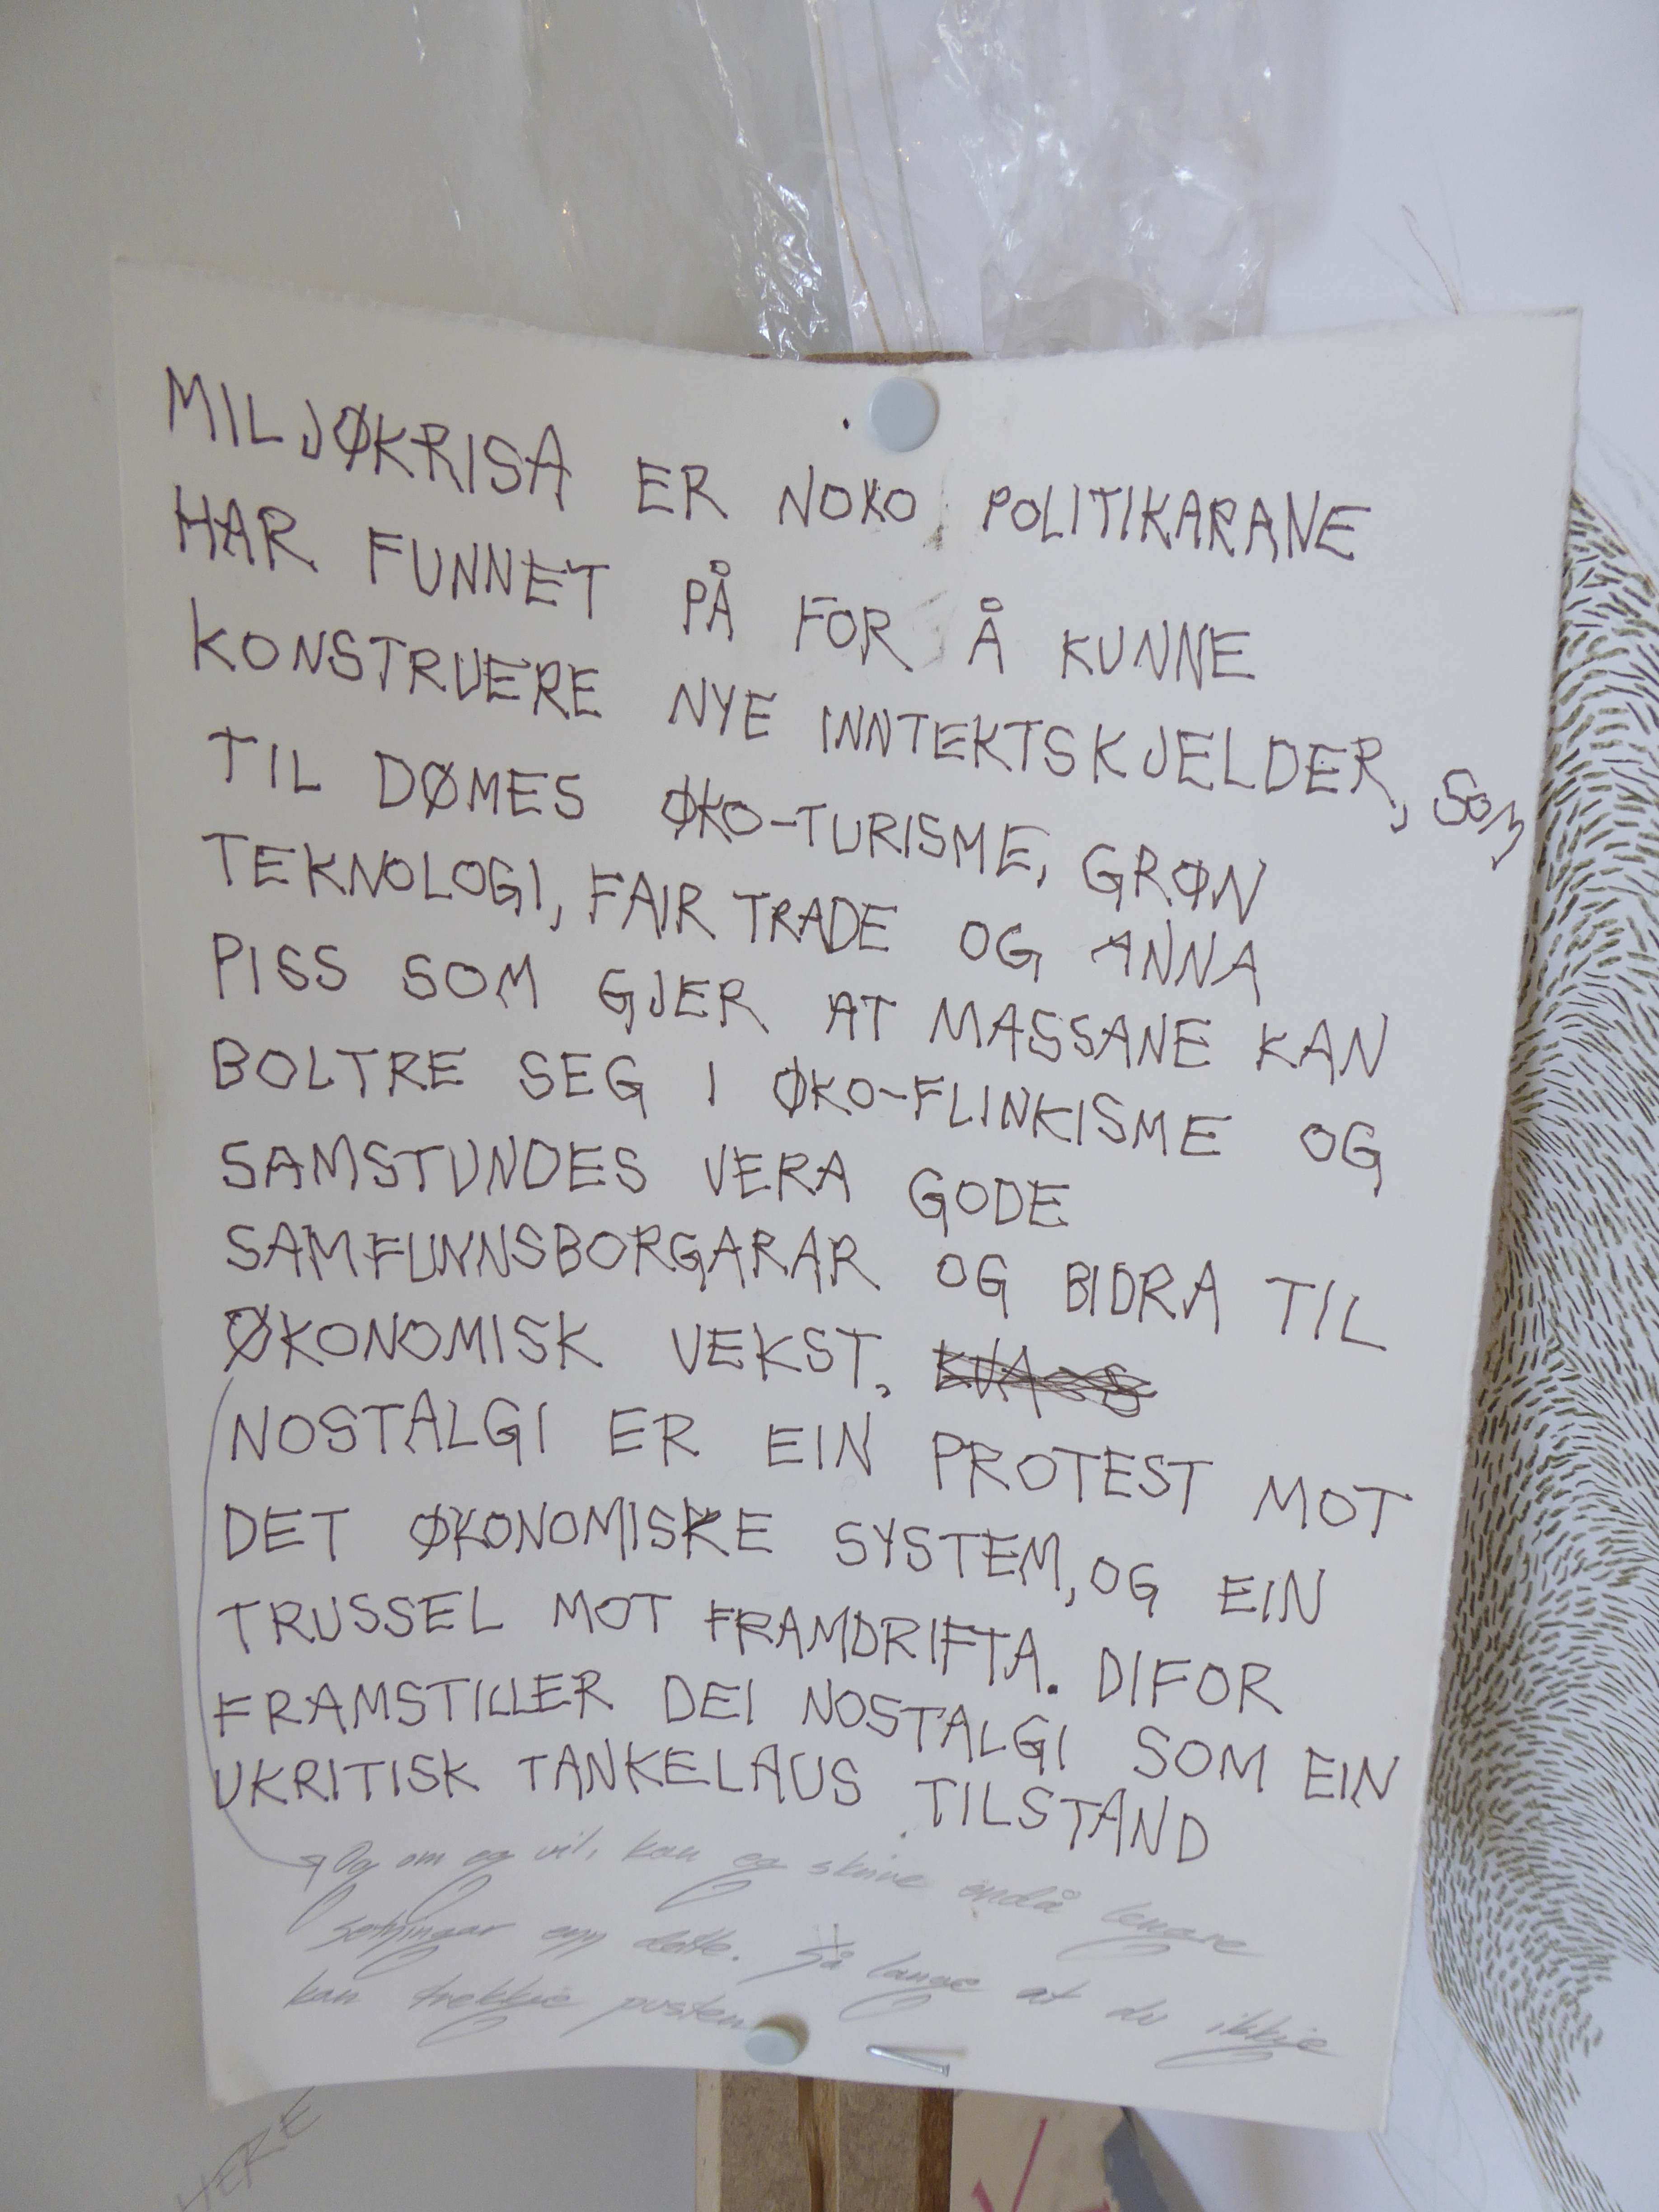 MILJØKRISA ER NOKO POLITIKARANE
HAR FUNNET PÅ FOR Å KUNNE
KONSTRUERE NYE INNTEKTSKJELDER, SOM
TIL DØMES ØKO-TURISME, GRØN
TEKNOLOGI, FAIR TRADE OG ANNA
PISS SOM GJER AT MASSANE KAN
BOLTRE SEG I ØKO-FLINKISME OG
SAMSTUNDES VERA GODE
SAMFUNNSBORGARAR OG BIDRA TIL
ØKONOMISK VEKST.
NOSTALGI ER EIN PROTEST MOT
DET ØKONOMISKE SYSTEM, OG EIN
TRUSSEL MOT FRAMDRIFTA. DIFOR
FRAMSTILLER DEI NOSTALGI SOM EIN
UKRITISK TANKELAUS TILSTAND
Og om eg vil, kan eg skrive endå lengre
setningar enn dette. Så lange at du ikkje
kan trekkje pusten
HERE